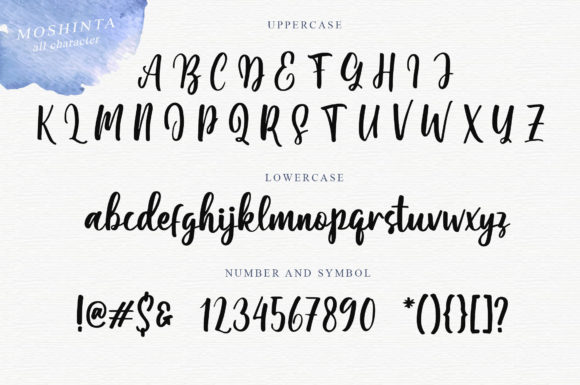 MOSHINTA
all character
UPPERCASE
A B C D E F G H I J
K L M N O P Q R S T U V W X Y Z
LOWERCASE
abcdefghijklmnopqrstuvwxyz
NUMBER AND SYMBOL
!@#$& 1234567890 *(){}[]?